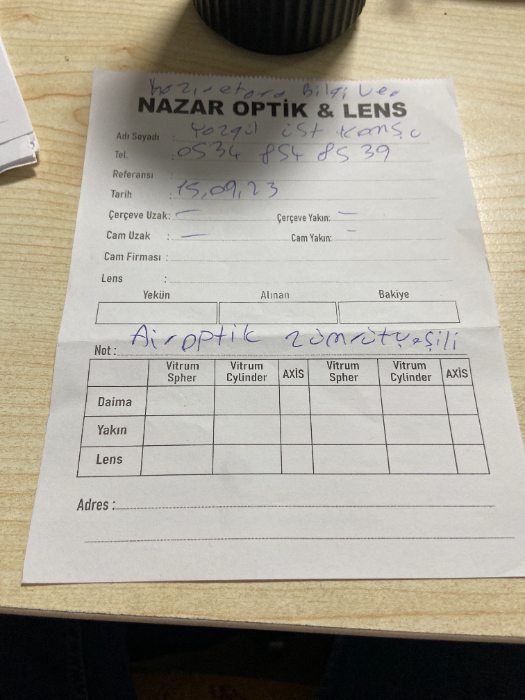 Bilgi Ver
NAZAR OPTİK & LENS
Adı Soyadı : ist
Tel. : 0534 854 8539
Referansı :
Tarih : 15,09,23
Çerçeve Uzak: — Çerçeve Yakın: —
Cam Uzak : — Cam Yakın: -
Cam Firması :
Lens :
Yekün Alınan Bakiye
Not : Airoptik zümrüt yeşili
Vitrum Spher Vitrum Cylinder AXİS Vitrum Spher Vitrum Cylinder AXİS
Daima
Yakın
Lens
Adres :